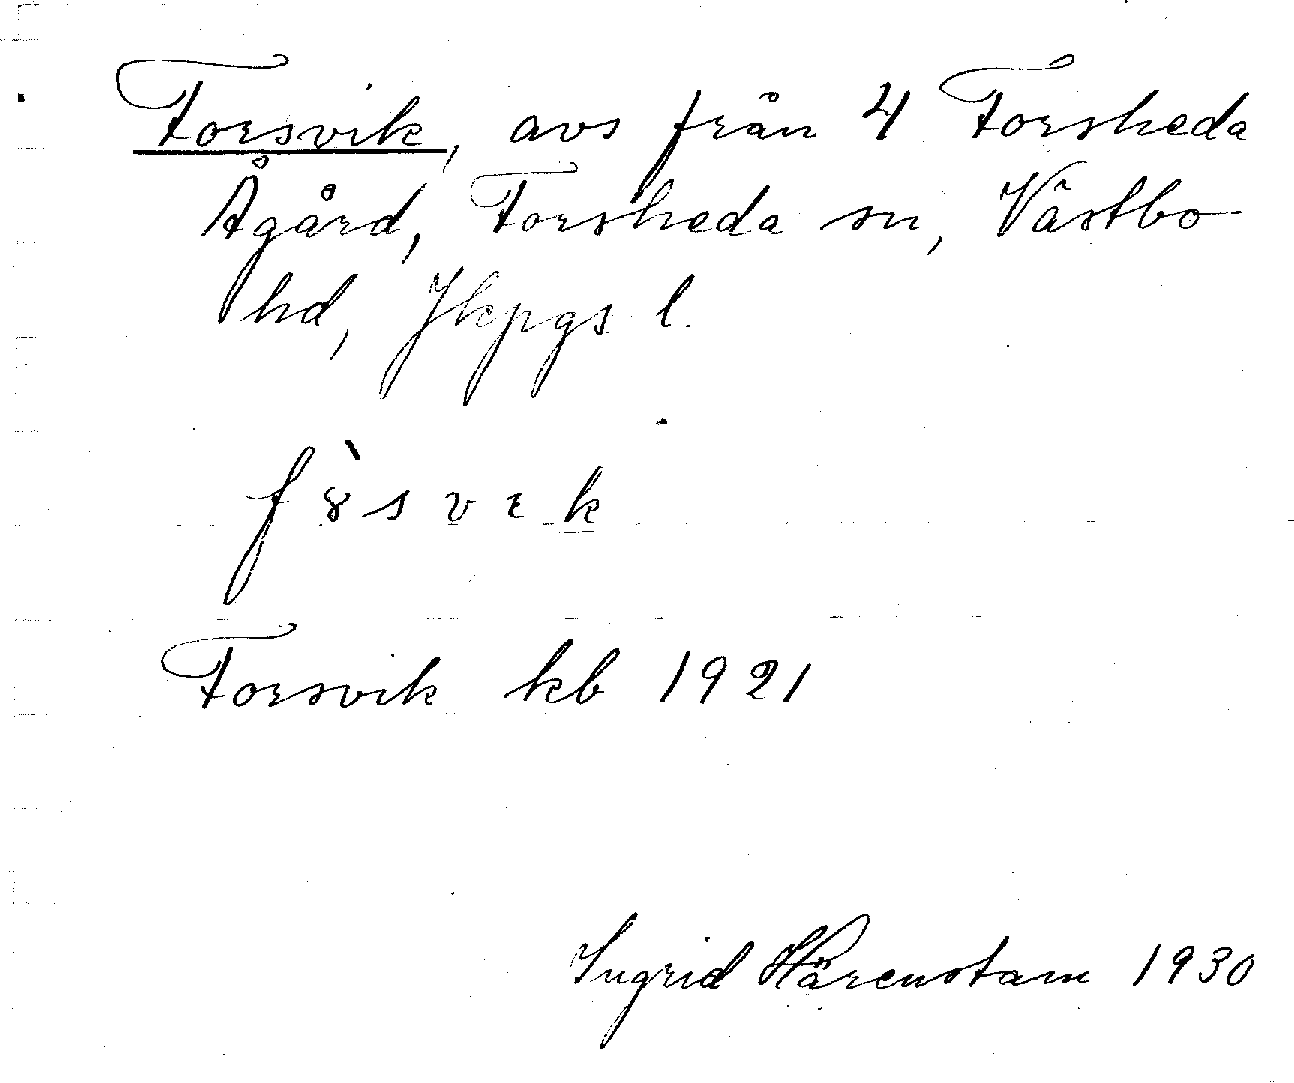 Forsvik, avs från 4 Forsheda
Ågård, Forsheda sn, Västbo
hd, Jkpgs l.
fòsvik
Forsvik kb 1921
Ingrid Härenstam 1930